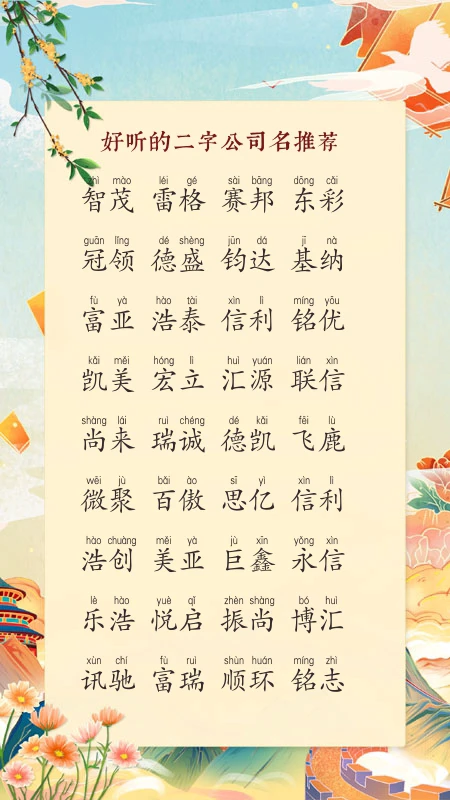 好听的二字公司名推荐
zhì mào léi gé sài bāng dōng cǎi
智茂 雷格 赛邦 东彩
guān lǐng dé shèng jūn dá jī nà
冠领 德盛 钧达 基纳
fù yà hào tài xìn lì míng yōu
富亚 浩泰 信利 铭优
kǎi měi hóng lì huì yuán lián xìn
凯美 宏立 汇源 联信
shàng lái ruì chéng dé kǎi fēi lù
尚来 瑞诚 德凯 飞鹿
wēi jù bǎi ào sī yì xìn lì
微聚 百傲 思亿 信利
hào chuàng měi yà jù xīn yǒng xìn
浩创 美亚 巨鑫 永信
lè hào yuè qǐ zhèn shàng bó huì
乐浩 悦启 振尚 博汇
xùn chí fù ruì shùn huán míng zhì
讯驰 富瑞 顺环 铭志